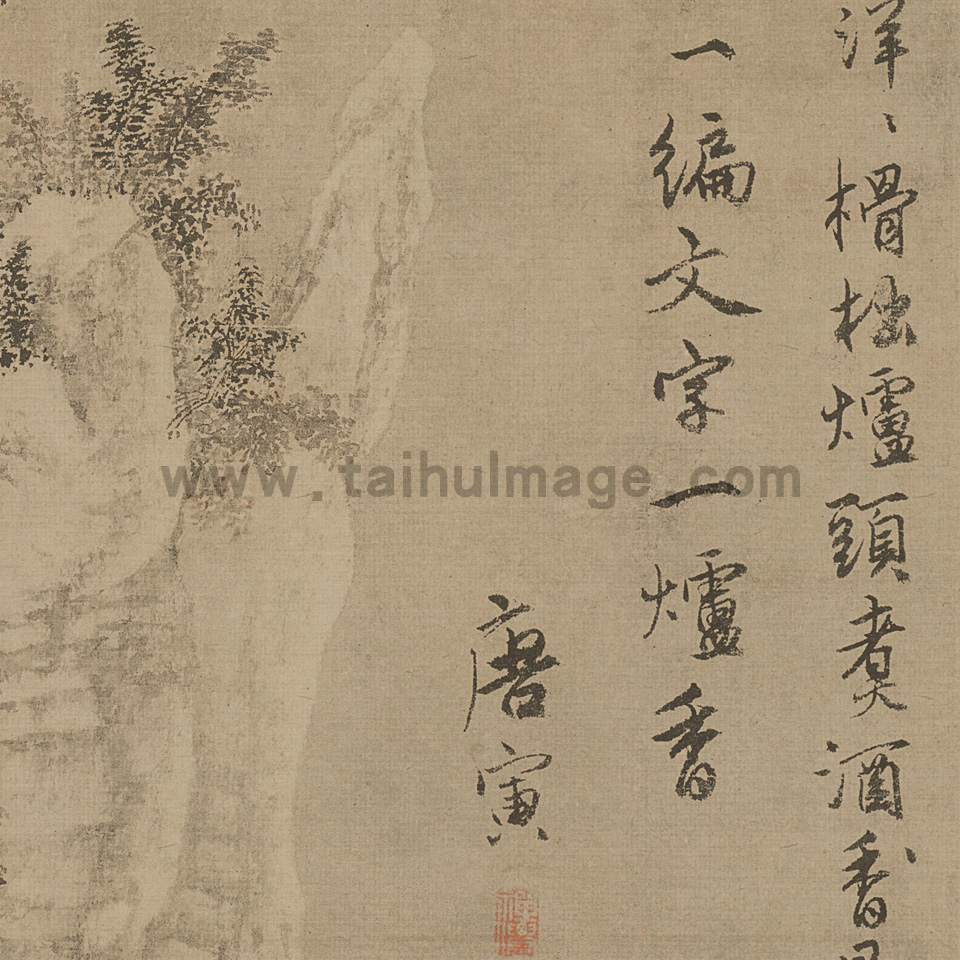 洋〻榾柮爐頭煮酒香
一編文字一爐香
唐寅
www.taihuImage.com